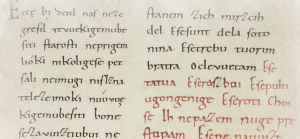 Eccę bi detd naſ neze
greſil teuuekigemube
ſiti ſtaroſti neprigem
lióki nikoligeſe pet
ſali neimugi niſlzna
telezemoki nuúvue
kigemubeſiti bone
ſezavuiztiubui ne
ſtanem zich mirzcih
del Eſeſunt dela ſoto
nina Eſetrebu tuorim
bratra Oclevuetam Eſe
tatua Eſeraſboi Eſepulti
ugongenige Eſeroti Choi
ſe Ih nepaſem nuge pre
ſtopam Eſene nauuiſt